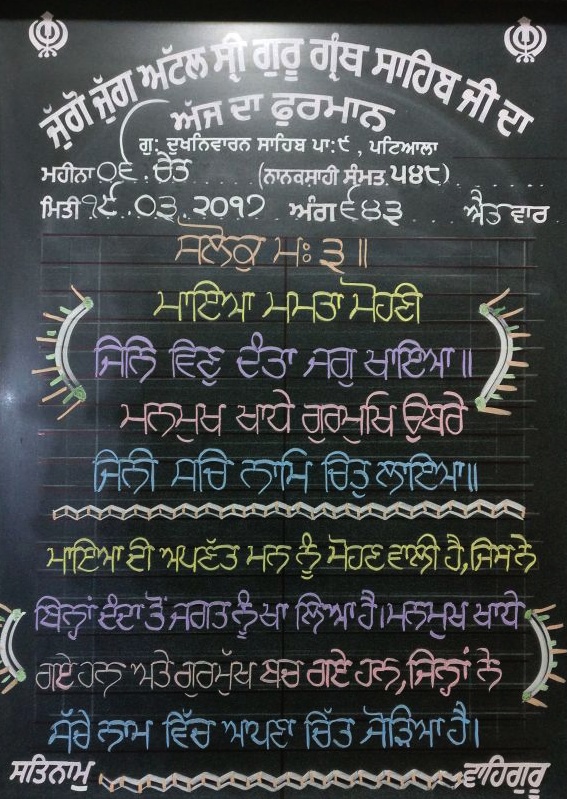 ਜੁੱਗੋ ਜੁੱਗ ਅਟੱਲ ਸ੍ਰੀ ਗੁਰੂ ਗ੍ਰੰਥ ਸਾਹਿਬ ਜੀ ਦਾ
ਅੱਜ ਦਾ ਫੁਰਮਾਨ
ਗੁ: ਦੁਖਨਿਵਾਰਨ ਸਾਹਿਬ ਪਾ:੯ , ਪਟਿਆਲਾ
ਮਹੀਨਾ ੦੬ ਚੇਤ (ਨਾਨਕਸ਼ਾਹੀ ਸੰਮਤ ੫੪੮)
ਮਿਤੀ ੧੯.੦੩.੨੦੧੭ ਅੰਗ ੬੪੩ ਐਤਵਾਰ
ਸਲੋਕੁ ਮਃ ੩ ॥
ਮਾਇਆ ਮਮਤਾ ਮੋਹਣੀ
ਜਿਨਿ ਵਿਣੁ ਦੰਤਾ ਜਗੁ ਖਾਇਆ॥
ਮਨਮੁਖ ਖਾਧੇ ਗੁਰਮੁਖਿ ਉਬਰੇ
ਜਿਨੀ ਸਚਿ ਨਾਮਿ ਚਿਤੁ ਲਾਇਆ॥
ਮਾਇਆ ਦੀ ਅਪਣੱਤ ਮਨ ਨੂੰ ਮੋਹਣ ਵਾਲੀ ਹੈ,ਜਿਸ ਨੇ
ਬਿਨ੍ਹਾਂ ਦੰਦਾ ਤੋਂ ਜਗਤ ਨੂੰ ਖਾ ਲਿਆ ਹੈ।ਮਨਮੁਖ ਖਾਧੇ
ਗਏ ਹਨ ਅਤੇ ਗੁਰਮੁੱਖ ਬਚ ਗਏ ਹਨ,ਜਿਨ੍ਹਾਂ ਨੇ
ਸੱਚੇ ਨਾਮ ਵਿੱਚ ਆਪਣਾ ਚਿੱਤ ਜੋੜਿਆ ਹੈ।
ਸਤਿਨਾਮੁ ਵਾਹਿਗੁਰੂ